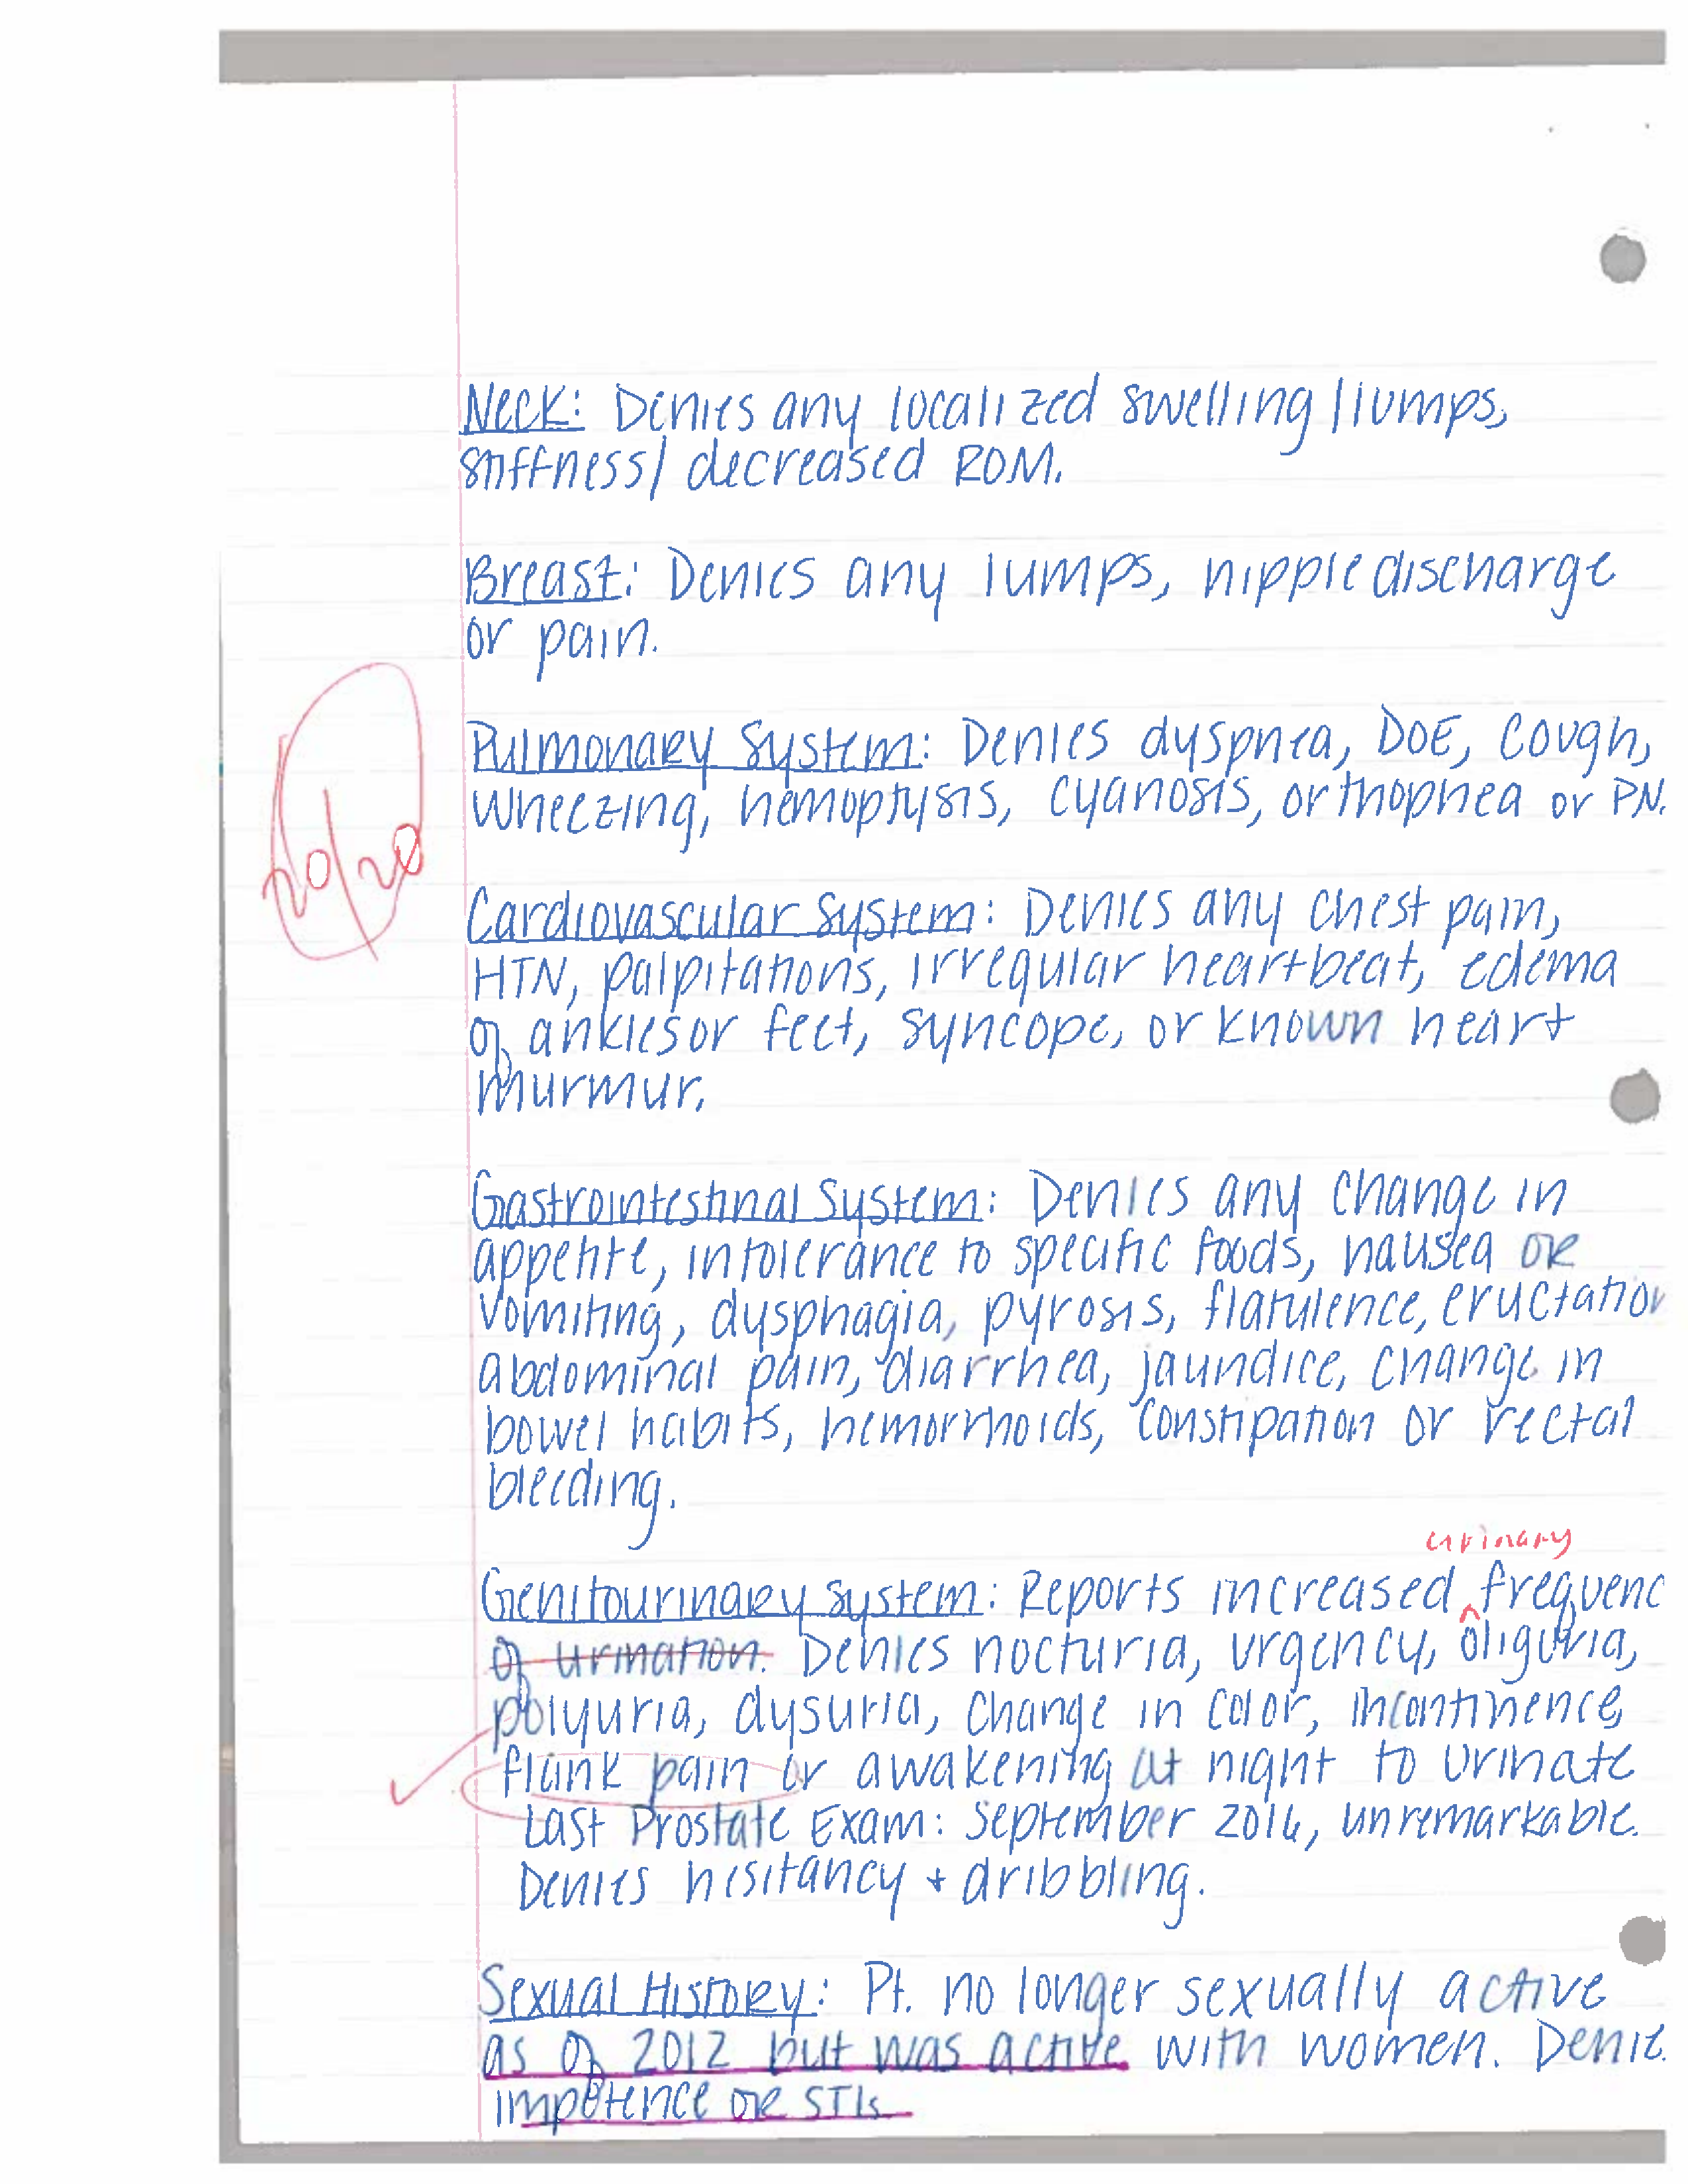 Neck: Denies any localized swelling/lumps,
stiffness/ decreased ROM.
Breast: Denies any lumps, nipple discharge
or pain.
Pulmonary System: Denies dyspnea, DOE, cough,
wheezing, hemoptysis, cyanosis, orthopnea or PN
20/20
Cardiovascular System: Denies any chest pain,
HTN, palpitations, irregular heartbeat, edema
of ankles or feet, syncope, or known heart
murmur.
Gastrointestinal System: Denies any change in
appetite, intolerance to specific foods, nausea or
vomiting, dysphagia, pyrosis, flatulence, eructation
abdominal pain, diarrhea, jaundice, change in
bowel habits, hemorrhoids, constipation or rectal
bleeding.
urinary
Genitourinary System: Reports increased ^ frequenc
of urination. Denies nocturia, urgency, oliguria,
polyuria, dysuria, change in color, incontinence,
flank pain or awakening at night to urinate
Last Prostate Exam: September 2016, unremarkable.
Denies hesitancy + dribbling.
Sexual History: Pt. no longer sexually active
as of 2012 but was active with women. Denie
impotence or STIs